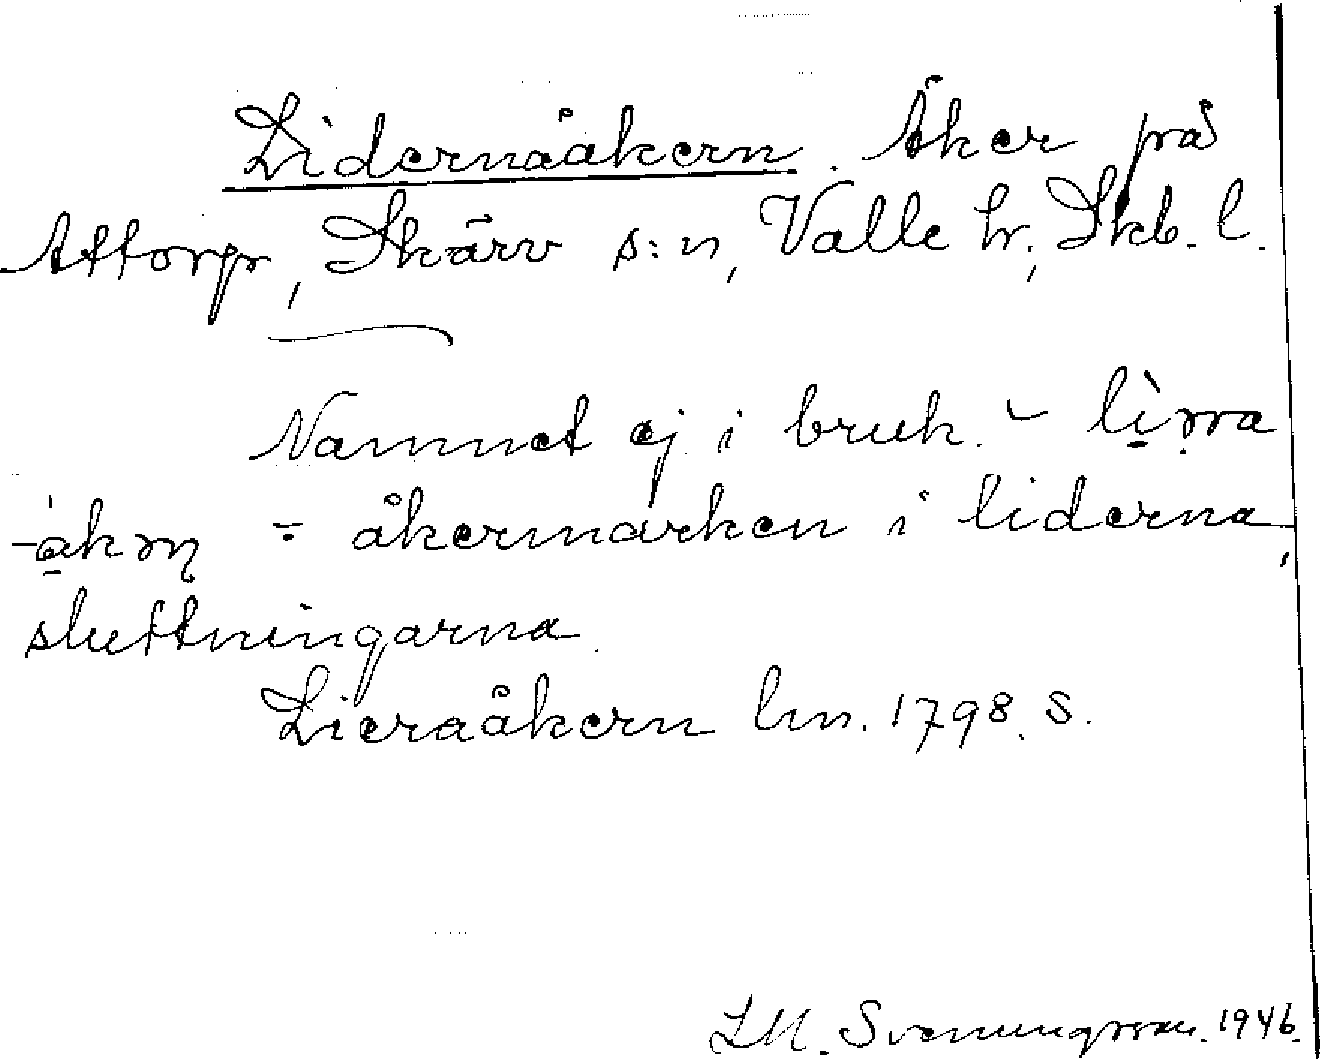 Lidernaåkern. Åker på
Attorp, Skärv s:n, Valle hr, Skb. l.
Namnet ej i bruk. ~ lìrra
-åkrn = åkermarken i liderna,
sluttningarna.
Lieraåkern lm. 1798. S.
L.M. Svenungsson. 1946.